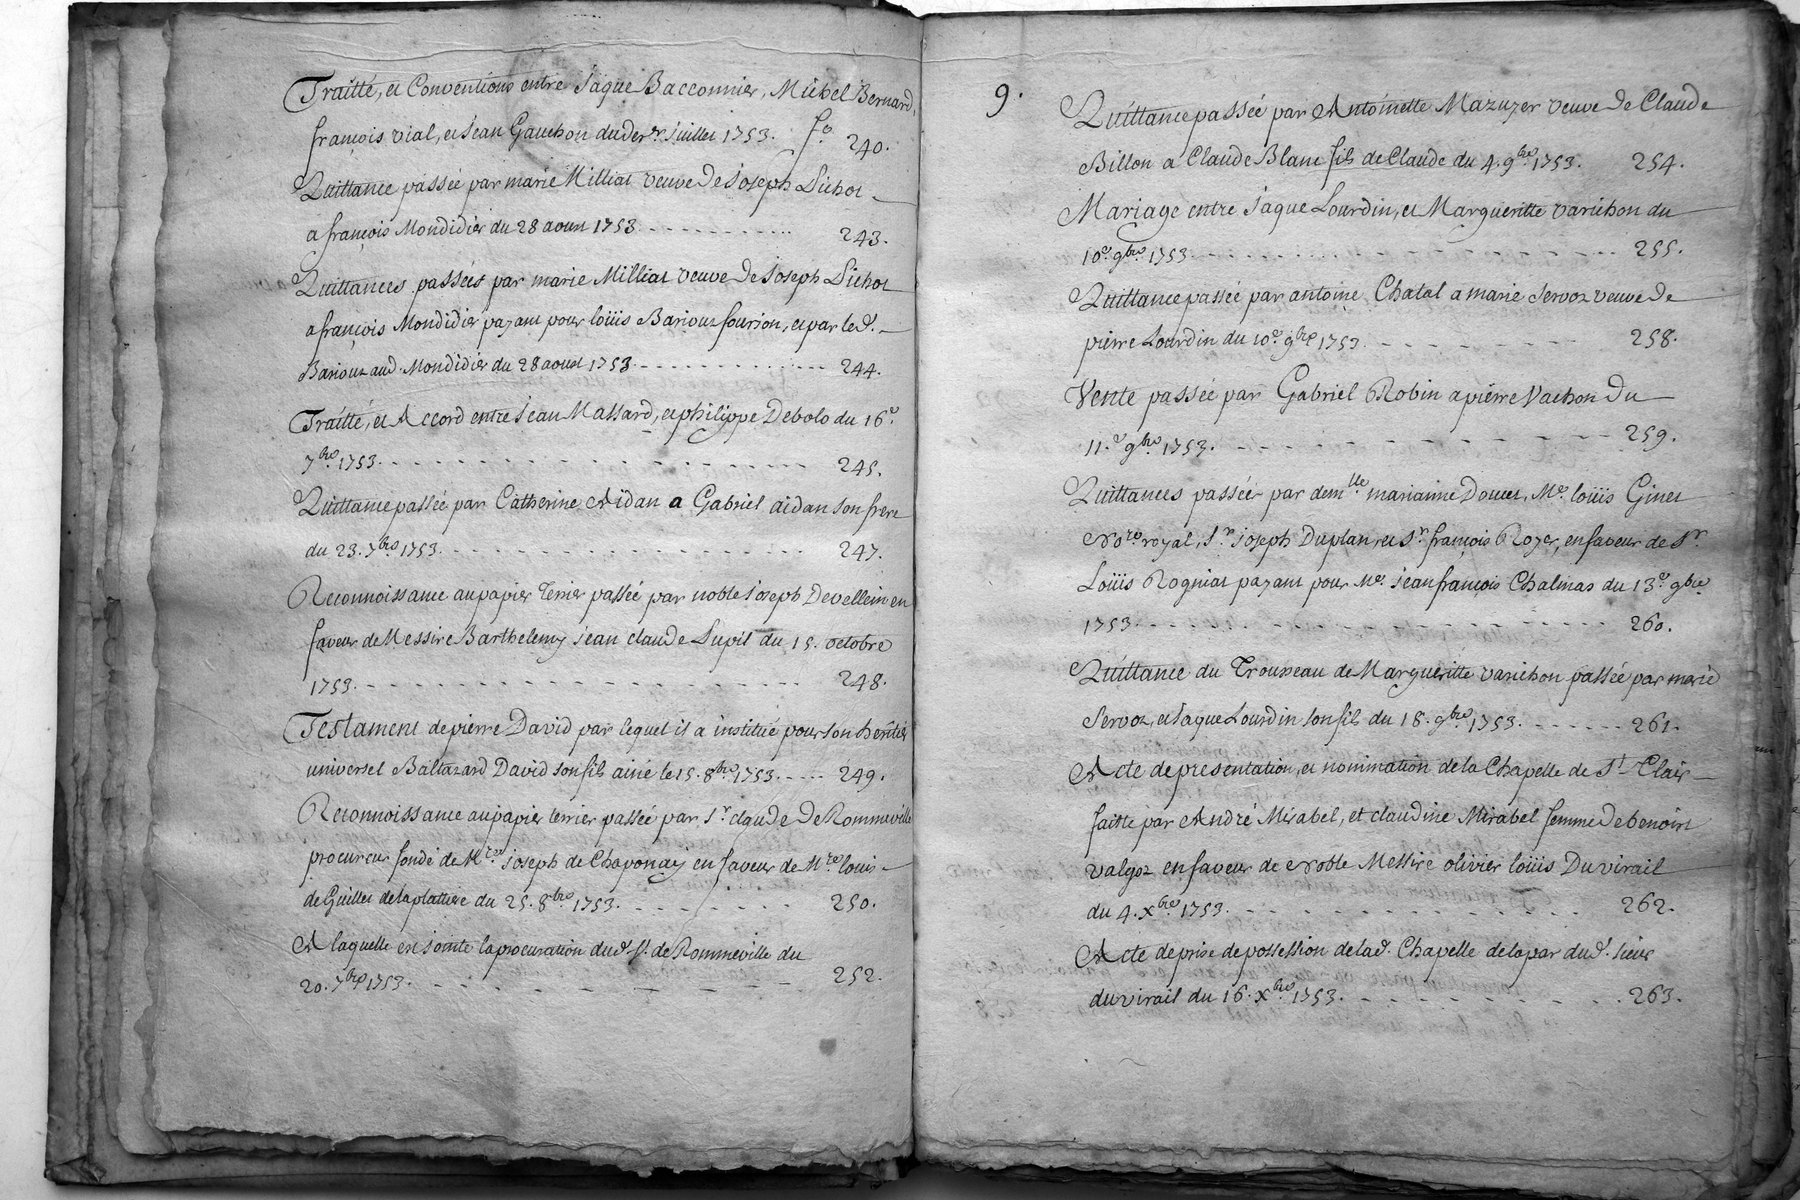 Traitté, et Conventions entre Jaque Bacconnier, Michel Bernard,
françois vial, et Jean Gauchon du der.er Juillet 1753. f.o 240.
Quittance passée par marie Milliat veuve de Joseph Pichot
a françois Mondidier du 28 aoust 1753. 243.
Quittances passées par marie Milliat veuve de Joseph Pichot
a françois Mondidier payant pour loüis Barioz fourion, et par led.
Barioz aud. Mondidier du 28 aoust 1753. 244.
Traitté, et Accord entre Jean Massard, et philippe Debolo du 16.e
7.bre 1753. 245.
Quittance passée par Catherine Aidan a Gabriel aidan son frere
du 23. 7.bre 1753. 247.
Reconnoissance au papier Terrier passée par noble Joseph Devellein en
faveur de Messire Barthelemy Jean claude Lupil du 15. octobre
1753. 248.
Testament de pierre David par lequel il a institué pour son heritier
universel Baltazard David son fils ainé le 15. 8.bre 1753. 249.
Reconnoissance au papier terrier passée par S.r claude De Rommeville
procureur fondé de M.re Joseph de Chaponay en faveur de M.re louis
de Guillet de laplattiere du 25. 8.bre 1753. 250.
A laquelle en Jointe la procuration dud. S.r de Rommeville du
20. 7.bre 1753. 252.
9.
Quittance passée par Antoinette Mazuyer veuve de Claude
Billon a Claude Blanc fils de Claude du 4. 9.bre 1753. 254.
Mariage entre Jaque Lourdin, et Margueritte varichon du
10.e 9.bre 1753. 255.
Quittance passée par antoine Chatal a marie Servoz veuve de
pierre Lourdin du 10.e 9.bre 1753. 258.
Vente passée par Gabriel Robin a pierre Vachon du
11.e 9.bre 1753. 259.
Quittances passées par dem.lle marianne Doucet, M.e loüis Ginet
No.re royal, S.r Joseph Duplan, et S.r françois Royer, en faveur de S.r
Loüis Rogniat payant pour M.e Jean françois Chalmas du 13.e 9bre
1753. 260.
Quittance du Trousseau de Margueritte varichon passée par marie
Servoz, et Jaque Lourdin son fils du 18. 9.bre 1753. 261.
Acte de presentation, et nomination de la Chapelle de S.t Clair
faitte par André Mirabel, et claudine Mirabel femme de benoit
valgoz en faveur de Noble Messire olivier loüis Duvirail
du 4. X.bre 1753. 262.
Acte de prise de possession de lad. Chapelle de la par dud. sieur
duvirail du 16. X.bre 1753. 263.